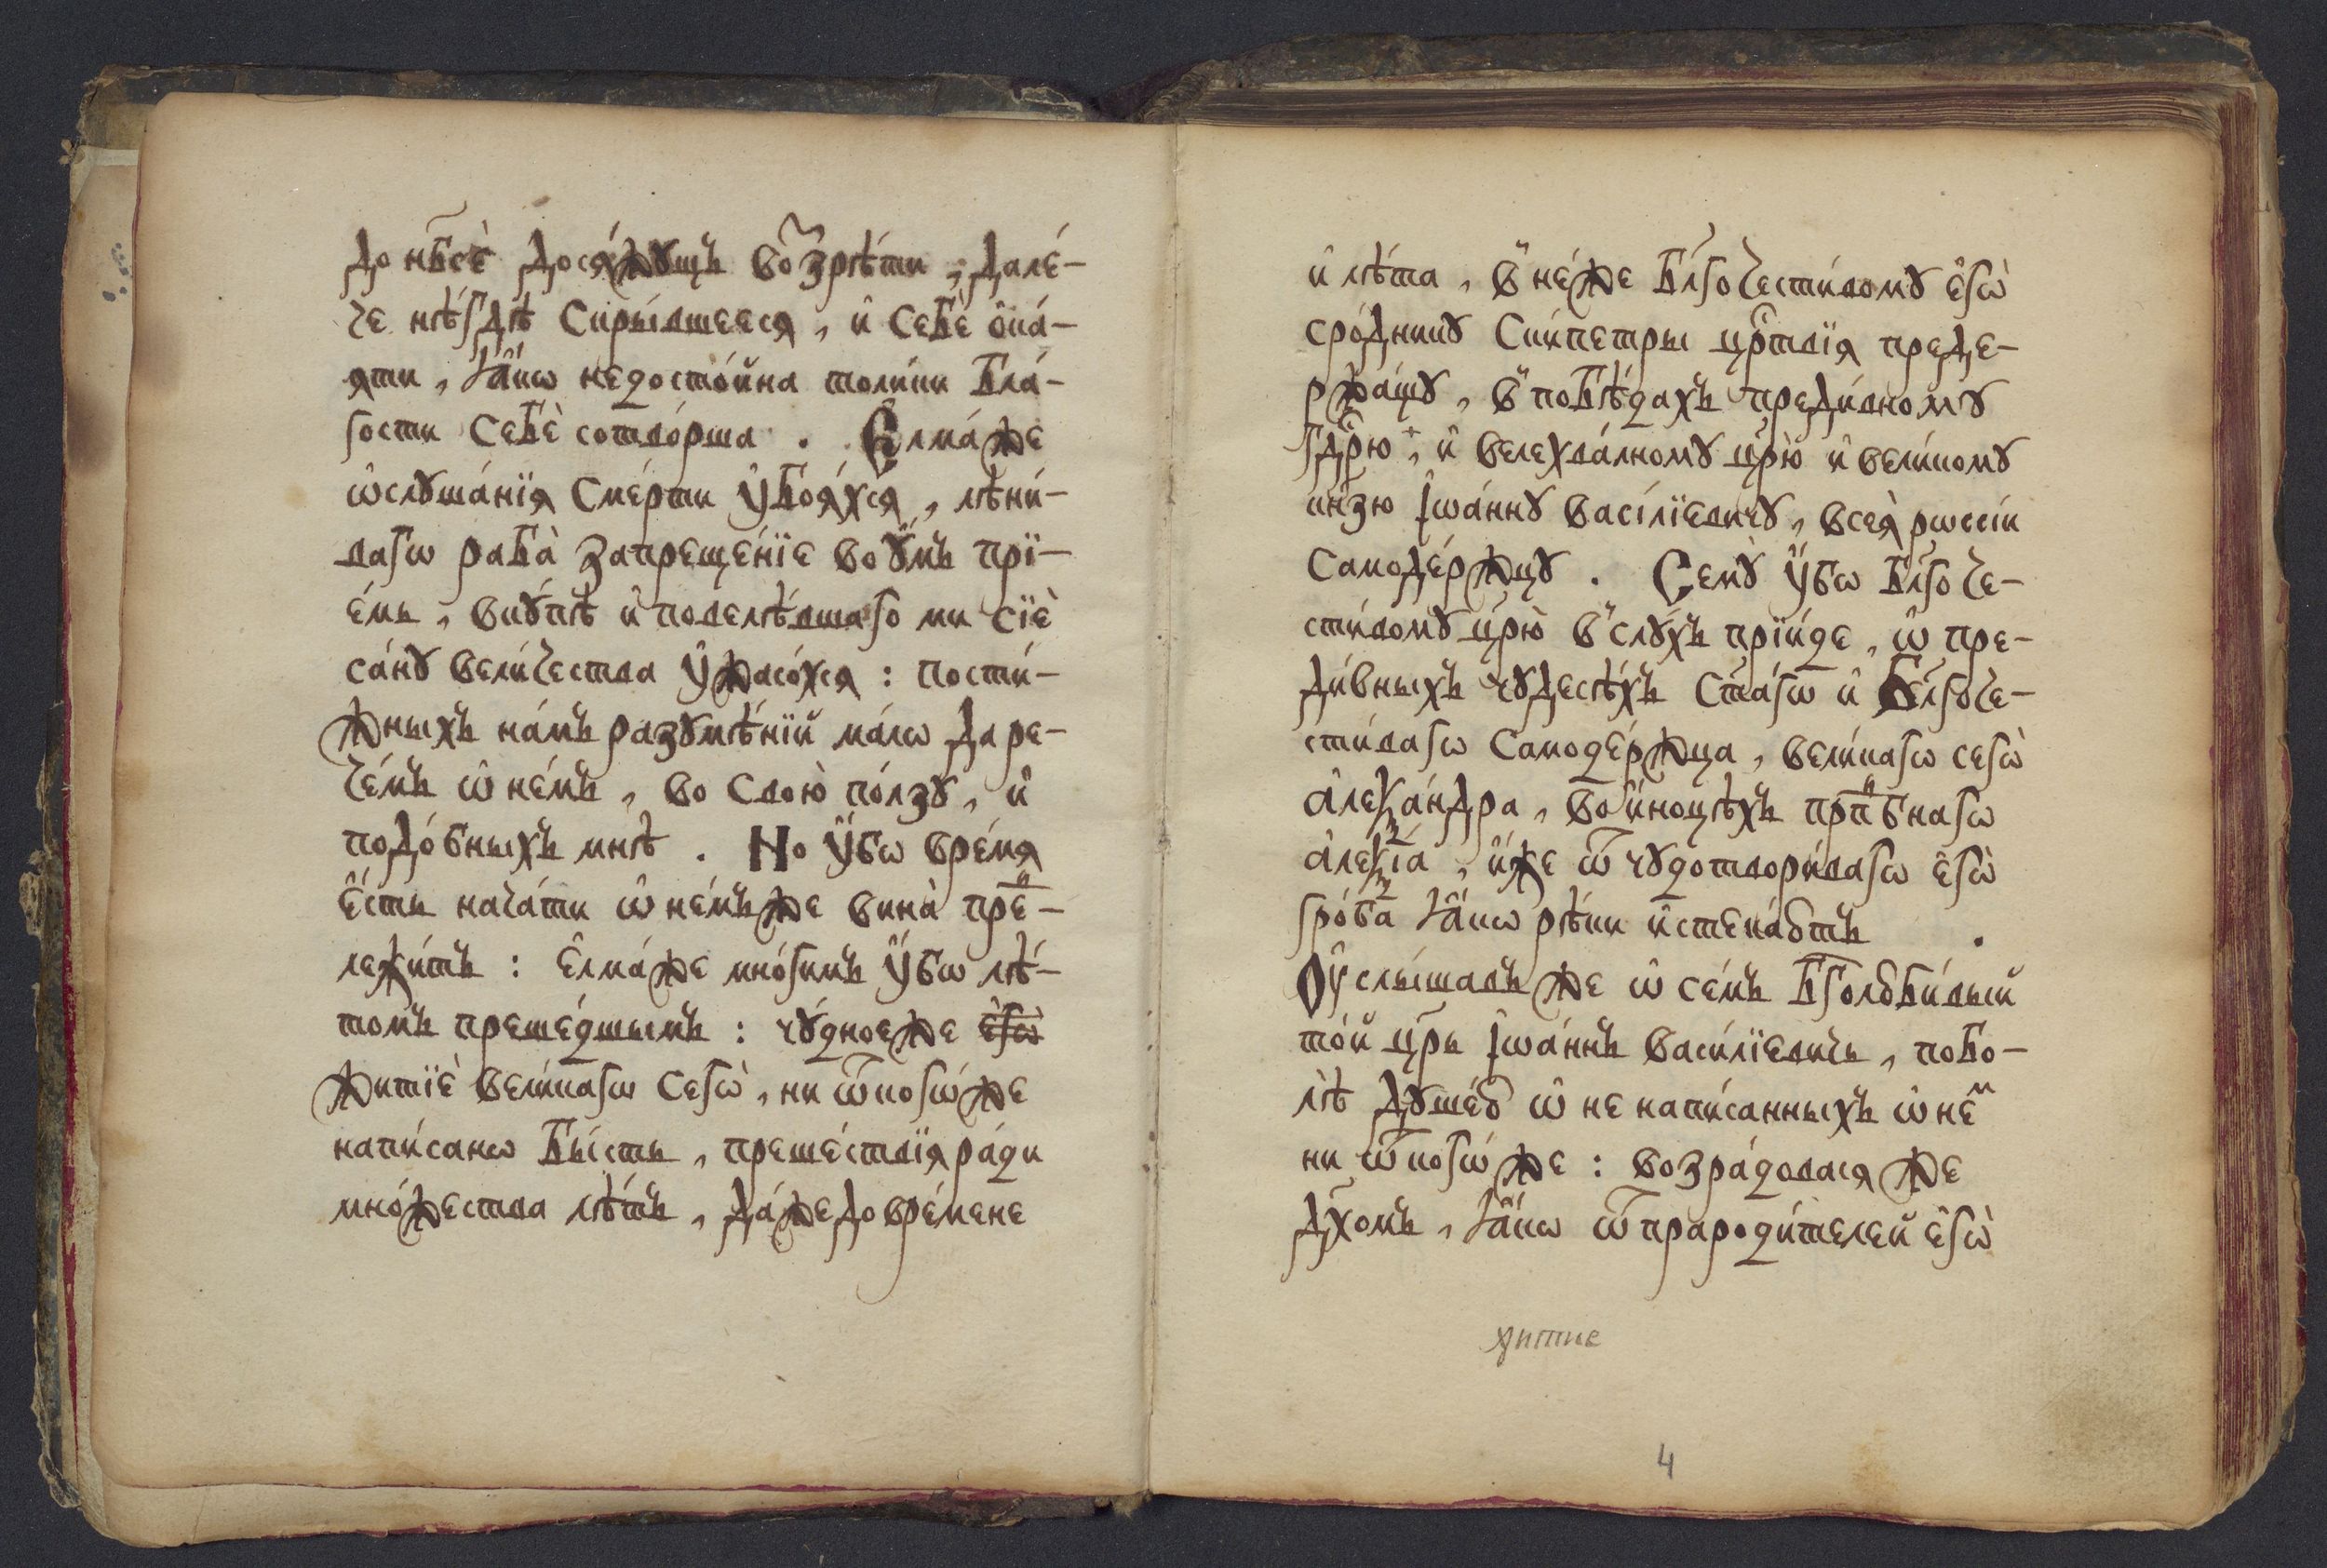 до нб҃сѐ досѧ́жꙋщъ возрѣ́ти , дале́-
че нѣ́гдѣ скры́вшеесѧ , и҆ себѐ ѻ҆каѧ́-
ѧти , ꙗ҆́кѡ недосто́йна толи́ки бла́-
гости себѐ сотво́рша . Е҆лма́же
ѡ҆слꙋша́нїѧ сме́рти ᲂу҆боѧ́хсѧ , лѣни́-
вагѡ раба̀ запреще́нїе во ᲂу҆́мъ прї-
е́мь , вкꙋ́пѣ и҆ повелѣ́вшаго ми сїѐ
са́нꙋ вели́чества ᲂу҆жасо́хсѧ : пости́-
жныхъ на́мъ разꙋмѣ́нїй ма́лѡ да ре-
че́мъ ѡ҆ не́мъ , во свою̀ по́лзꙋ , и҆
подо́бныхъ мнѣ̀ . Но ᲂу҆́бѡ вре́мѧ
е҆́сть нача́ти ѡ҆ не́мъже вина̀ пре́ⷣ-
лежи́тъ : е҆лма́же мно́гимъ ᲂу҆́бѡ лѣ́-
томъ преше́дшымъ : чꙋ́дноеже є҆гѡ̀
житїѐ вели́кагѡ сегѡ̀ , ни ѿ когѡ́же
напи́санѡ бы́сть , преше́ствїѧ ра́ди
мно́жества лѣ́тъ , да́же до вре́мене
и҆ лѣ́та , в не́же бл҃гочести́вомꙋ є҆гѡ̀
сро́дникꙋ скипетры црⷭ҇твїѧ преде-
ржа́щꙋ , в побѣ́дахъ преди́вномꙋ
гд҃рю , и҆ велехва́лномꙋ цр҃ю̀ и҆ вели́комꙋ
кн҃зю І҆ѡа́ннꙋ васі́лїевичꙋ , всеѧ̀ рѡссі́и
самоде́ржцꙋ . Семꙋ̀ ᲂу҆́бѡ бл҃гоче-
сти́вомꙋ цр҃ю̀ в слꙋ́хъ прїи́де , ѡ҆ пре-
ди́вныхъ чꙋдесѣ́хъ ст҃а́гѡ и҆ бл҃гоче-
сти́вагѡ самоде́ржца , вели́кагѡ сегѡ̀
а҆леѯа́ндра , во и҆ноцѣ́хъ прпⷣбнагѡ
а҆леѯі́а , и҆́же ѿ чꙋдотвори́вагѡ є҆гѡ̀
гро́ба ꙗ҆́кѡ рѣ́ки и҆стека́ютъ .
Оу҆слы́шавъ же ѡ҆ се́мъ бг҃олюби́вый
то́й цр҃ь І҆ѡа́ннъ васи́лїевичь , побо-
лѣ̀ дꙋше́ю ѡ҆ не напи́санныхъ ѡ҆ не́ⷨ
ни ѿ когѡ́же : возра́довасѧ же
дх҃омъ , ꙗ҆́кѡ ѿ прароди́телей є҆гѡ̀
житие
4